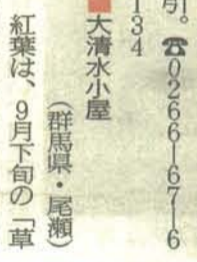 引。☎0266―67―6
134
■大清水小屋
(群馬県・尾瀬)
紅葉は、9月下旬の「草